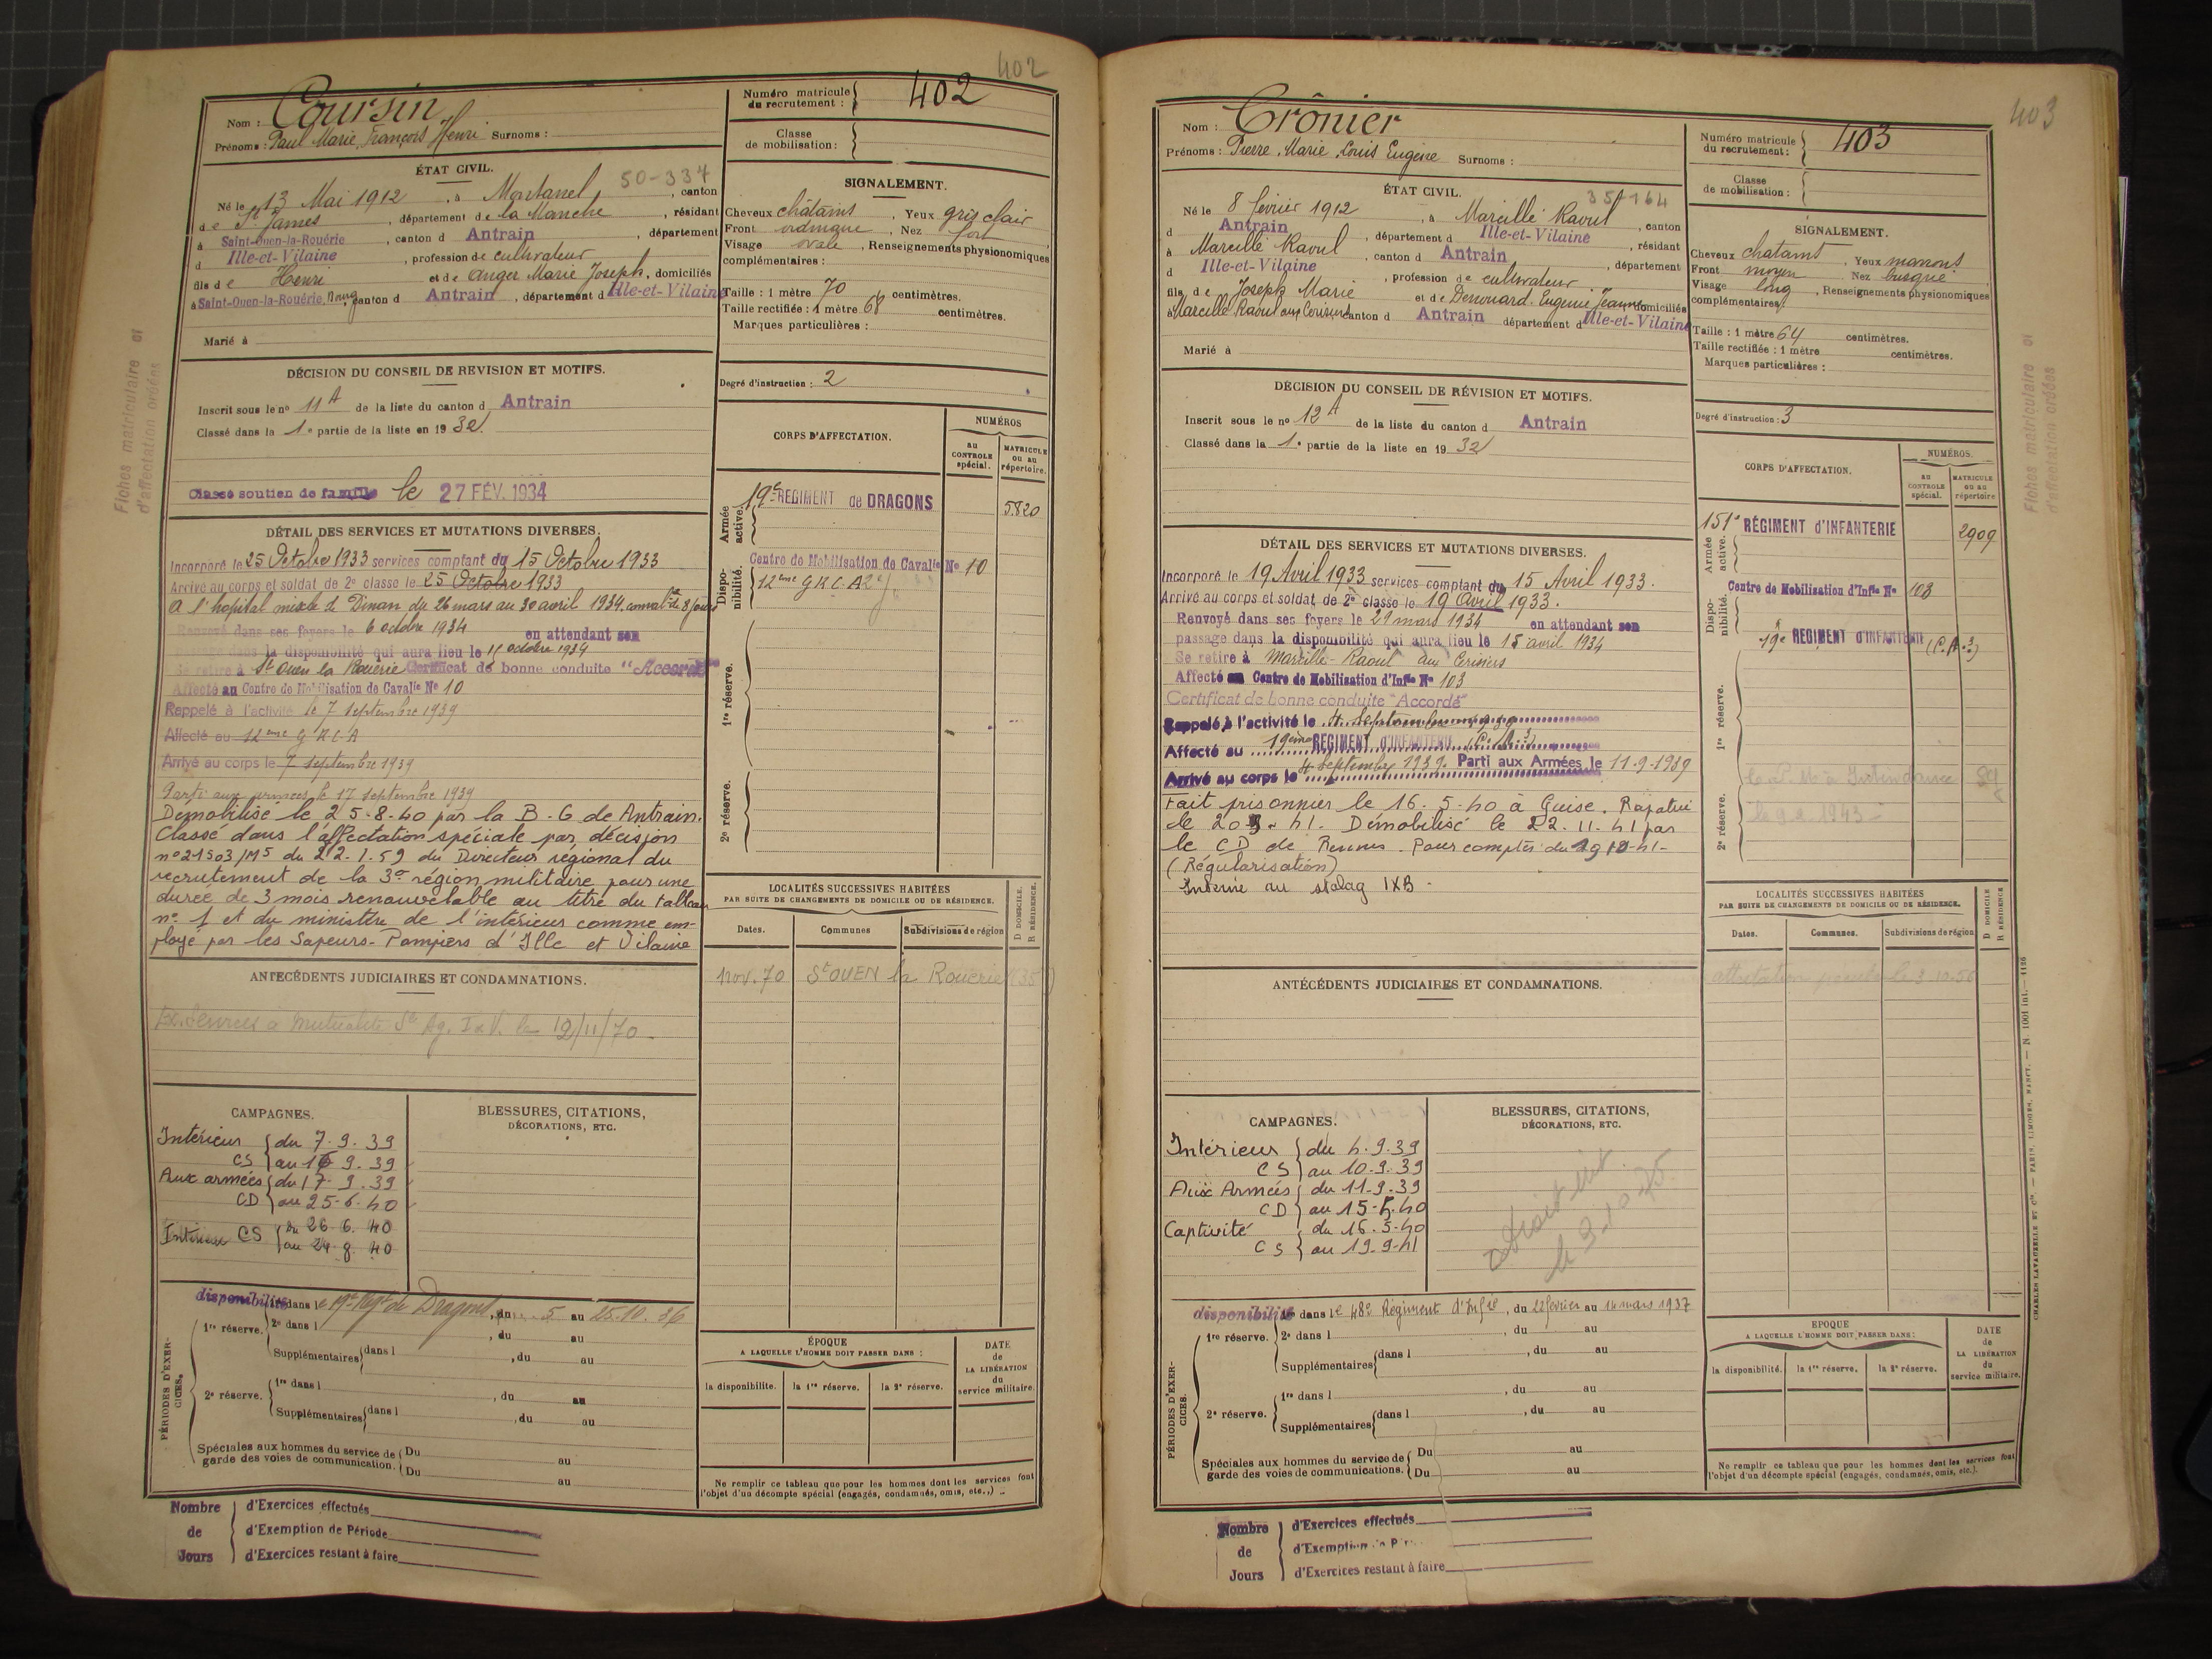 402
Nom : Coursin
Prénoms : Paul Marie François Henri Surnoms :
Numéro matricule du recrutement : 402
Classe de mobilisation :
ÉTAT CIVIL.
50-334
Né le 13 Mai 1912, à Montanel, canton
de St James, département de la Manche, résidant
à Saint-Ouen-la-Rouërie, canton d Antrain, département
d Ille-et-Vilaine, profession de cultivateur
fils de Henri et de Anger Marie Joseph, domiciliés
à Saint-Ouen-la-Rouërie, Bourg canton d Antrain, département d Ille-et-Vilaine
Marié à
SIGNALEMENT.
Cheveux châtains, Yeux gris clair
Front ordinaire, Nez fort
Visage ovale, Renseignements physionomiques
complémentaires :
Taille : 1 mètre 70 centimètres.
Taille rectifiée : 1 mètre 68 centimètres.
Marques particulières :
Degré d'instruction : 2
DÉCISION DU CONSEIL DE REVISION ET MOTIFS.
Inscrit sous le n° 11 A de la liste du canton d Antrain
Classé dans la 1e partie de la liste en 1932
Classé soutien de famille le 27 FÉV. 1934
CORPS D'AFFECTATION.
NUMÉROS
AU CONTROLE spécial.
MATRICULE OU AU répertoire.
Armée active.
19e REGIMENT de DRAGONS
5820
Disponibilité.
Centre de Mobilisation de Cavalie No 10
12ème G R C A
1re réserve.
2e réserve.
DÉTAIL DES SERVICES ET MUTATIONS DIVERSES.
Incorporé le 25 Octobre 1933 services comptant du 15 Octobre 1933
Arrivé au corps et soldat de 2e classe le 25 Octobre 1933
A l'hopital mixte de Dinan du 26 mars au 30 avril 1934. 8 jours
Renvoyé dans ses foyers le 6 octobre 1934 en attendant son
passage dans la disponibilité qui aura lieu le 15 octobre 1934
Se retire à St Ouen la Rouërie Certificat de bonne conduite "Accordé"
Affecté au Centre de Mobilisation de Cavalie No 10
Rappelé à l'activité le 7 septembre 1939
Affecté au 12ème G R C A
Arrivé au corps le 7 septembre 1939
Parti aux armées le 17 septembre 1939
Démobilisé le 25-8-40 par la B.G de Antrain.
Classé dans l'affectation spéciale par décision
n° 21503/M5 du 22.1.59 du Directeur régional du
recrutement de la 3e région militaire pour une
durée de 3 mois renouvelable au titre du tableau
n° 1 et du ministère de l'intérieur comme em-
ployé par les Sapeurs-Pompiers d'Ille et Vilaine
LOCALITÉS SUCCESSIVES HABITÉES
PAR SUITE DE CHANGEMENTS DE DOMICILE OU DE RÉSIDENCE.
D DOMICILE. R RÉSIDENCE.
Dates. Communes Subdivisions de région
nov. 70 St OUEN la Rouërie (35)
ANTÉCÉDENTS JUDICIAIRES ET CONDAMNATIONS.
le 12/11/70
CAMPAGNES.
Intérieur du 7.9.39
CS au 16 9.39
Aux armées du 17-9.39
CD au 25-6-40
Intérieur CS du 26 6. 40
au 24 8 40
BLESSURES, CITATIONS, DÉCORATIONS, ETC.
PÉRIODES D'EXERCICES.
disponibilité dans le 19e Regt de Dragons, du 5 au 25.10.36
1re réserve. 2e dans l , du au
Supplémentaires dans l , du au
2e réserve. 1re dans l , du au
Supplémentaires dans l , du au
Spéciales aux hommes du service de garde des voies de communication. Du au
Du au
ÉPOQUE A LAQUELLE L'HOMME DOIT PASSER DANS :
la disponibilité. la 1re réserve. la 2e réserve.
DATE de LA LIBÉRATION du service militaire.
Ne remplir ce tableau que pour les hommes dont les services font
l'objet d'un décompte spécial (engagés, condamnés, omis, etc.,)
Nombre de Jours
d'Exercices effectués
d'Exemption de Période
d'Exercices restant à faire
Fiches matriculaire et
d'affectation créées
403
Nom : Crônier
Prénoms : Pierre, Marie, Louis Eugène Surnoms :
Numéro matricule du recrutement : 403
Classe de mobilisation :
ÉTAT CIVIL.
35-164
Né le 8 février 1912, à Marcillé Raoul, canton
d Antrain, département d Ille-et-Vilaine, résidant
à Marcillé Raoul, canton d Antrain, département
d Ille-et-Vilaine, profession de cultivateur
fils de Joseph Marie et de Derouard Eugénie Jeanne domiciliés
à Marcillé Raoul aux Cerisiers canton d Antrain département d Ille-et-Vilaine
Marié à
SIGNALEMENT.
Cheveux chatains, Yeux marrons
Front moyen, Nez busqué
Visage long, Renseignements physionomiques
complémentaires
Taille : 1 mètre 64 centimètres.
Taille rectifiée : 1 mètre centimètres.
Marques particulières :
Degré d'instruction : 3
DÉCISION DU CONSEIL DE RÉVISION ET MOTIFS.
Inscrit sous le n° 12 A de la liste du canton d Antrain
Classé dans la 1e partie de la liste en 1932
CORPS D'AFFECTATION.
NUMÉROS.
AU CONTROLE spécial.
MATRICULE OU AU répertoire
Armée active.
151e RÉGIMENT d'INFANTERIE
2909
Disponibilité.
Centre de Mobilisation d'Infie No 103
19e REGIMENT d'INFANTERIE
1re réserve.
2e réserve.
le 9.2.1943
DÉTAIL DES SERVICES ET MUTATIONS DIVERSES.
Incorporé le 19 Avril 1933 services comptant du 15 Avril 1933.
Arrivé au corps et soldat de 2e classe le 19 Avril 1933.
Renvoyé dans ses foyers le 21 mars 1934 en attendant son
passage dans la disponibilité qui aura lieu le 15 avril 1934
Se retire à Marcillé-Raoul aux Cerisiers
Affecté au Centre de Mobilisation d'Infie No 103
Certificat de bonne conduite "Accordé"
Rappelé à l'activité le 4 Septembre 1939
Affecté au 19ème REGIMENT d'INFANTERIE
Arrivé au corps le 4 Septembre 1939. Parti aux Armées le 11-9-1939
Fait prisonnier le 16.5.40 à Guise. Rapatrié
le 20 9-41. Démobilisé le 22.11.41 par
le CD de Rennes. Pour compter du
(Régularisation)
Interné au stalag IXB.
LOCALITÉS SUCCESSIVES HABITÉES
PAR SUITE DE CHANGEMENTS DE DOMICILE OU DE RÉSIDENCE.
D DOMICILE R RÉSIDENCE
Dates. Communes. Subdivisions de région
attestation le 3.10.56
ANTÉCÉDENTS JUDICIAIRES ET CONDAMNATIONS.
CAMPAGNES.
Intérieur du 4.9.39
CS au 10.9.39
Aux Armées du 11-9.39
CD au 15-5.40
Captivité du 16.5-40
CS au 19.9-41
BLESSURES, CITATIONS, DÉCORATIONS, ETC.
PÉRIODES D'EXERCICES.
disponibilité dans le 48e Régiment d'Infie, du 22 février au 14 mars 1937
1re réserve. 2e dans l , du au
Supplémentaires dans l , du au
2e réserve. 1re dans l , du au
Supplémentaires dans l , du au
Spéciales aux hommes du service de garde des voies de communications. Du au
Du au
EPOQUE A LAQUELLE L'HOMME DOIT PASSER DANS :
la disponibilité. la 1re réserve. la 2e réserve.
DATE de LA LIBÉRATION du service militaire.
Ne remplir ce tableau que pour les hommes dont les services font
l'objet d'un décompte spécial (engagés, condamnés, omis, etc.).
Nombre de Jours
d'Exercices effectués
d'Exemption
d'Exercices restant à faire
Fiches matriculaire et
d'affectation créées
CHARLES LAVAUZELLE ET Cie. — PARIS, LIMOGES, NANCY. — N 1001 int. — 1126